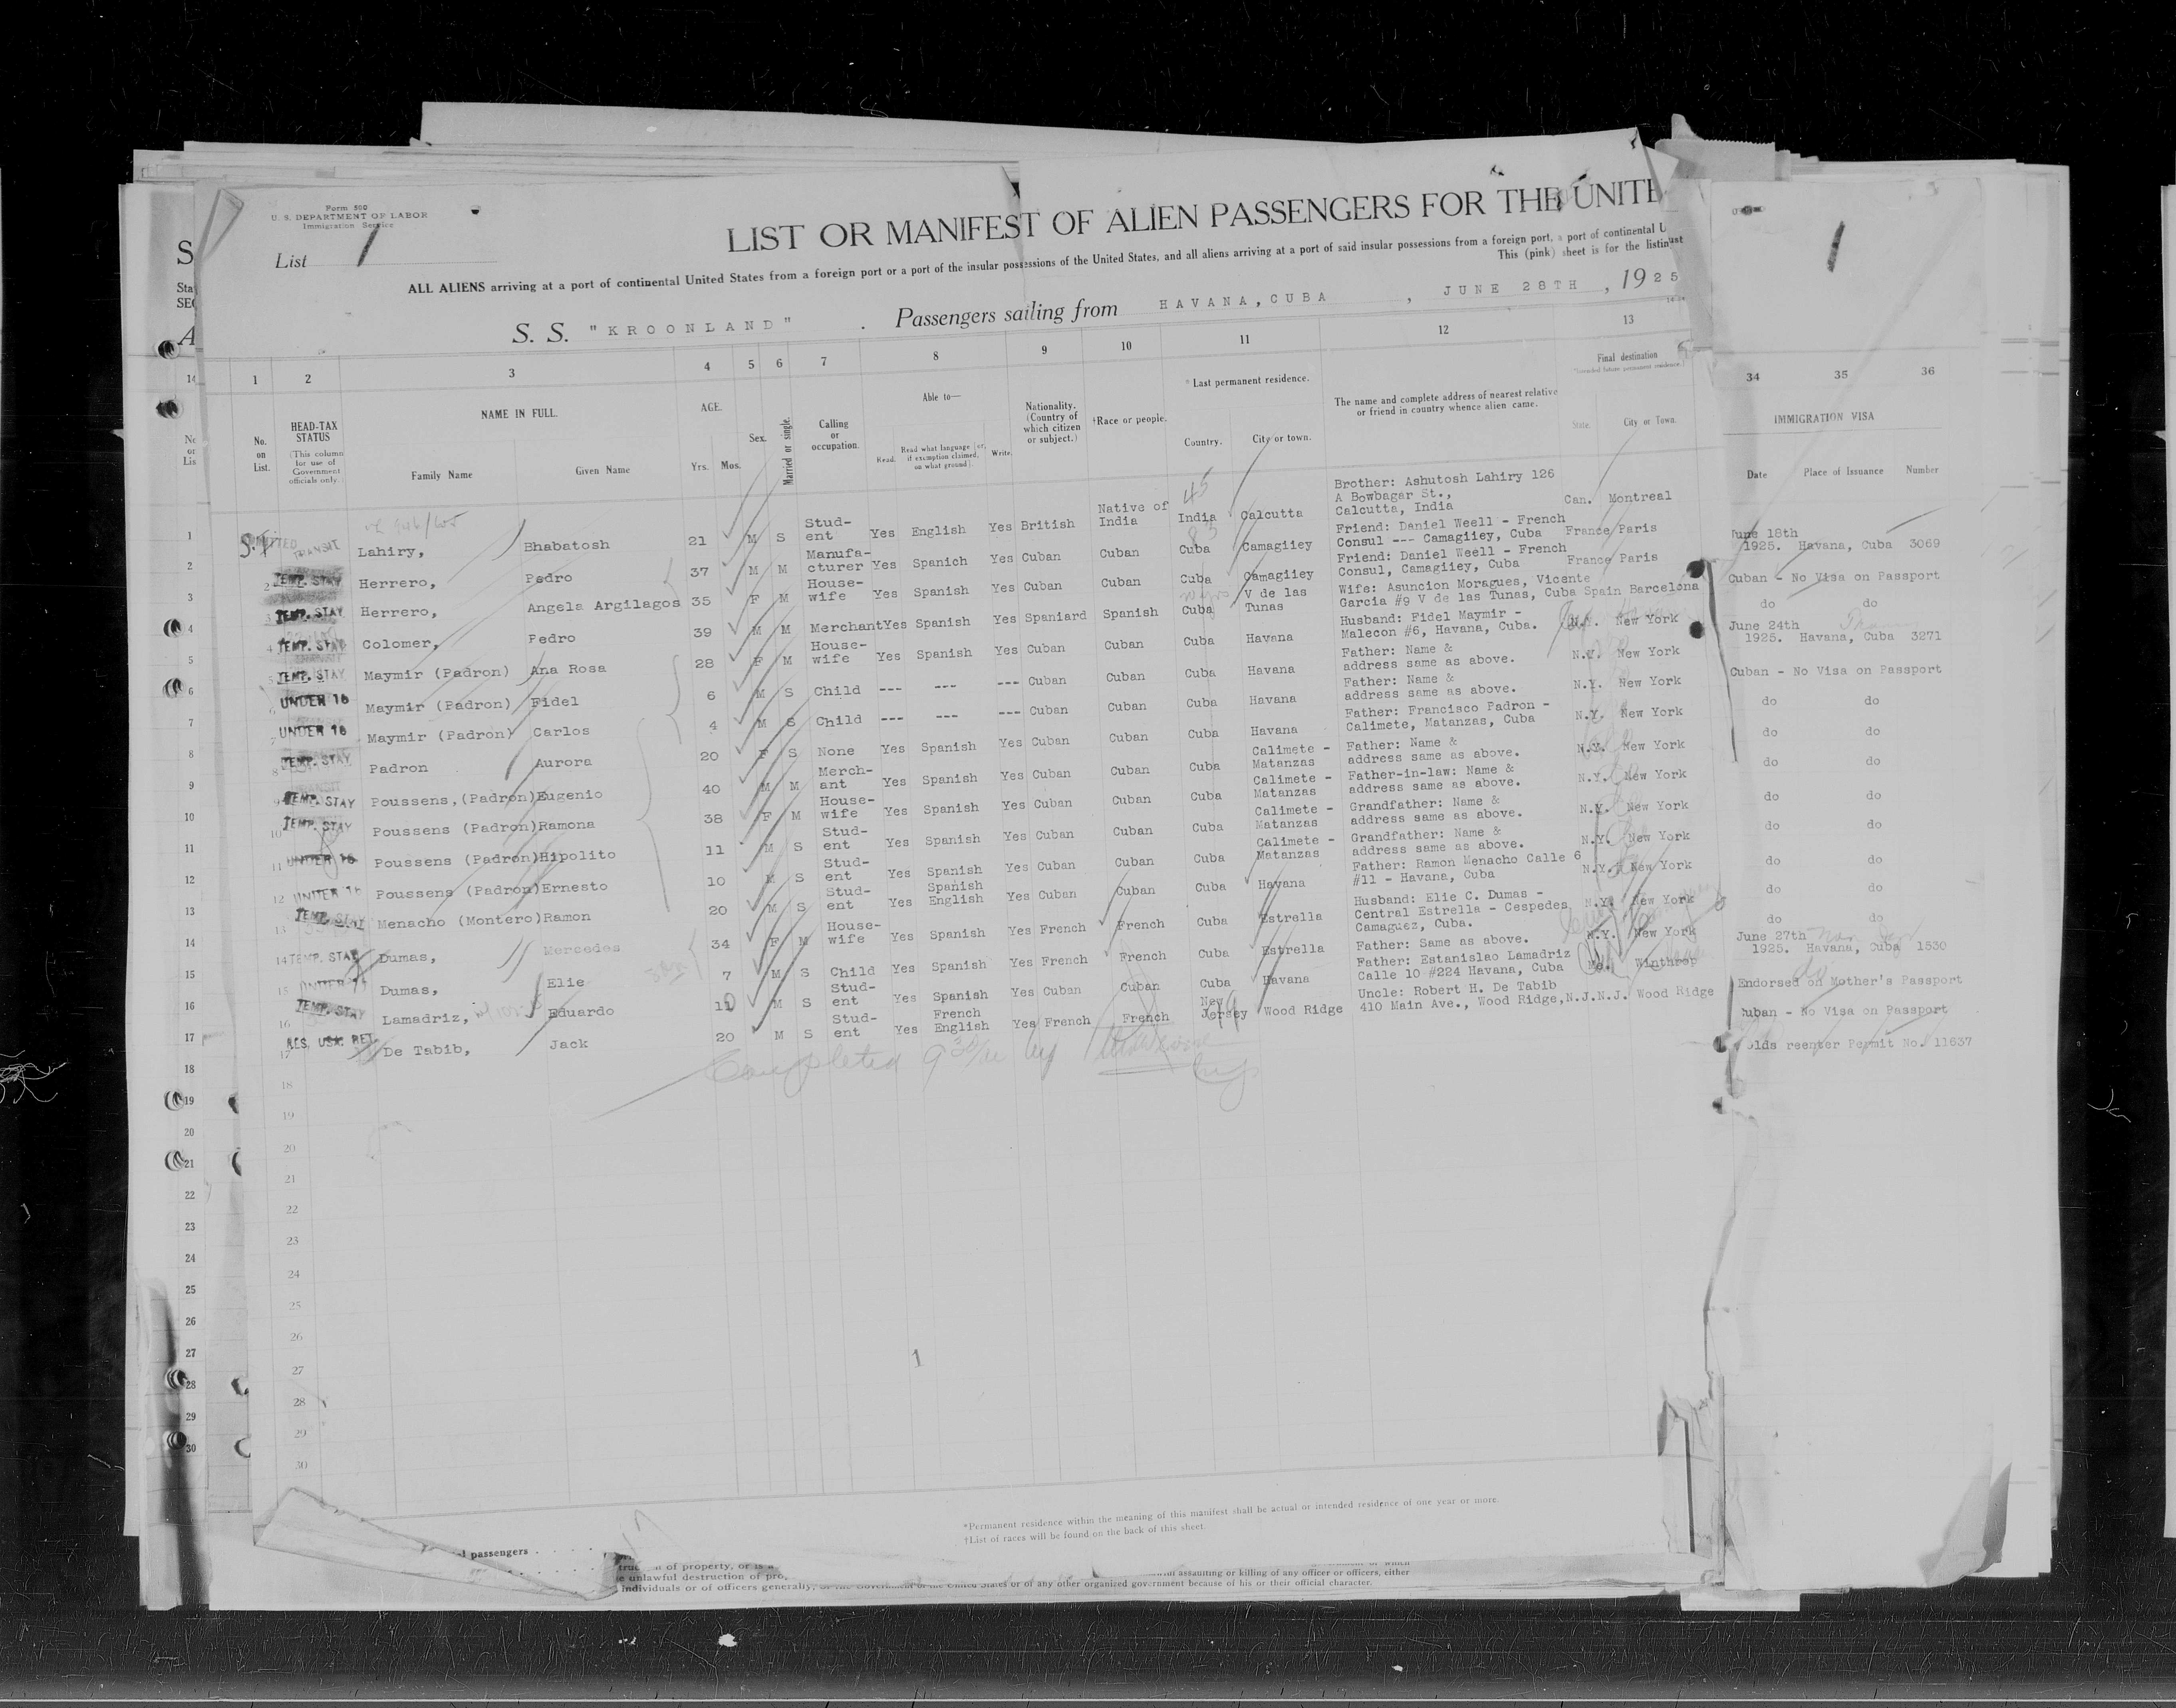 Form 500
U. S. DEPARTMENT OF LABOR
Immigration Service
List 1
LIST OR MANIFEST OF ALIEN PASSENGERS FOR THE UNITE
ALL ALIENS arriving at a port of continental United States from a foreign port or a port of the insular possessions of the United States, and all aliens arriving at a port of said insular possessions from a foreign port, a port of continental U
This (pink) sheet is for the listing
S. S. "KROONLAND" . Passengers sailing from HAVANA, CUBA , JUNE 28TH , 1925
1 2 3 4 5 6 7 8 9 10 11 12 13 34 35 36
No. on List.
HEAD-TAX STATUS
(This column for use of Government officials only
NAME IN FULL.
Family Name Given Name
AGE.
Yrs. Mos.
Sex.
Married or single.
Calling or occupation.
Able to—
Read. Read what language [or, if exemption claimed, on what ground]. Write.
Nationality. (Country of which citizen or subject.)
†Race or people.
*Last permanent residence.
Country. City or town.
The name and complete address of nearest relative or friend in country whence alien came.
Final destination
State. City or Town.
IMMIGRATION VISA
Date Place of Issuance Number
1 TRANSIT Lahiry, Bhabatosh 21 M S Student Yes English Yes British Native of India India Calcutta Brother: Ashutosh Lahiry 126 A Bowbagar St., Calcutta, India Can. Montreal June 18th 1925. Havana, Cuba 3069
2 TEMP. STAY Herrero, Pedro 37 M M Manufacturer Yes Spanich Yes Cuban Cuban Cuba Camagiiey Friend: Daniel Weell - French Consul --- Camagiiey, Cuba France Paris Cuban - No Visa on Passport
3 TEMP. STAY Herrero, Angela Argilagos 35 F M House-wife Yes Spanish Yes Cuban Cuban Cuba Camagiiey Friend: Daniel Weell - French Consul, Camagiiey, Cuba France Paris do do
4 TEMP. STAY Colomer, Pedro 39 M M Merchant Yes Spanish Yes Spaniard Spanish Cuba V de las Tunas Wife: Asuncion Moragues, Vicente Garcia #9 V de las Tunas, Cuba Spain Barcelona June 24th 1925. Havana, Cuba 3271
5 TEMP. STAY Maymir (Padron) Ana Rosa 28 F M House-wife Yes Spanish Yes Cuban Cuban Cuba Havana Husband: Fidel Maymir - Malecon #6, Havana, Cuba. N.Y. New York Cuban - No Visa on Passport
6 UNDER 16 Maymir (Padron) Fidel 6 M S Child --- --- --- Cuban Cuban Cuba Havana Father: Name & address same as above. N.Y. New York do do
7 UNDER 16 Maymir (Padron) Carlos 4 M S Child --- --- --- Cuban Cuban Cuba Havana Father: Name & address same as above. N.Y. New York do do
8 TEMP. STAY Padron Aurora 20 F S None Yes Spanish Yes Cuban Cuban Cuba Calimete - Matanzas Father: Francisco Padron - Calimete, Matanzas, Cuba N.Y. New York do do
9 TEMP. STAY Poussens, (Padron) Eugenio 40 M M Merch-ant Yes Spanish Yes Cuban Cuban Cuba Calimete - Matanzas Father: Name & address same as above. N.Y. New York do do
10 TEMP. STAY Poussens (Padron) Ramona 38 F M House-wife Yes Spanish Yes Cuban Cuban Cuba Calimete - Matanzas Father-in-law: Name & address same as above. N.Y. New York do do
11 UNDER 16 Poussens (Padron) Hipolito 11 M S Stud-ent Yes Spanish Yes Cuban Cuban Cuba Calimete - Matanzas Grandfather: Name & address same as above. N.Y. New York do do
12 UNDER 16 Poussens (Padron) Ernesto 10 M S Stud-ent Yes Spanish Yes Cuban Cuban Cuba Grandfather: Name & address same as above. N.Y. New York do do
13 TEMP. STAY Menacho (Montero) Ramon 20 M S Stud-ent Yes Spanish English Yes Cuban Cuban Cuba Havana Father: Ramon Menacho Calle 6 #11 - Havana, Cuba N.Y. New York do do
14 TEMP. STAY Dumas, Mercedes 34 F M House-wife Yes Spanish Yes French French Cuba Estrella Husband: Elie C. Dumas - Central Estrella - Cespedes, Camaguez, Cuba. N.Y. New York June 27th 1925. Havana, Cuba 1530
15 UNDER 16 Dumas, Elie 7 M S Child Yes Spanish Yes French French Cuba Estrella Father: Same as above. N.Y. New York Endorsed on Mother's Passport
16 TEMP. STAY Lamadriz, Eduardo M S Stud-ent Yes Spanish Yes Cuban Cuban Cuba Havana Father: Estanislao Lamadriz Calle 10 #224 Havana, Cuba Winthrop Cuban - No Visa on Passport
17 RES. USA. RET. De Tabib, Jack 20 M S Stud-ent Yes French English Yes French French New Jersey Wood Ridge Uncle: Robert H. De Tabib 410 Main Ave., Wood Ridge, N.J. N.J. Wood Ridge olds reenter Permit No. 11637
Completed
18
19
20
21
22
23
24
25
26
27
28
29
30
1
*Permanent residence within the meaning of this manifest shall be actual or intended residence of one year or more.
†List of races will be found on the back of this sheet.
passengers
of property, or is a
e unlawful destruction of pro
assaulting or killing of any officer or officers, either
individuals or of officers generally, of the Government of the United States or of any other organized government because of his or their official character.